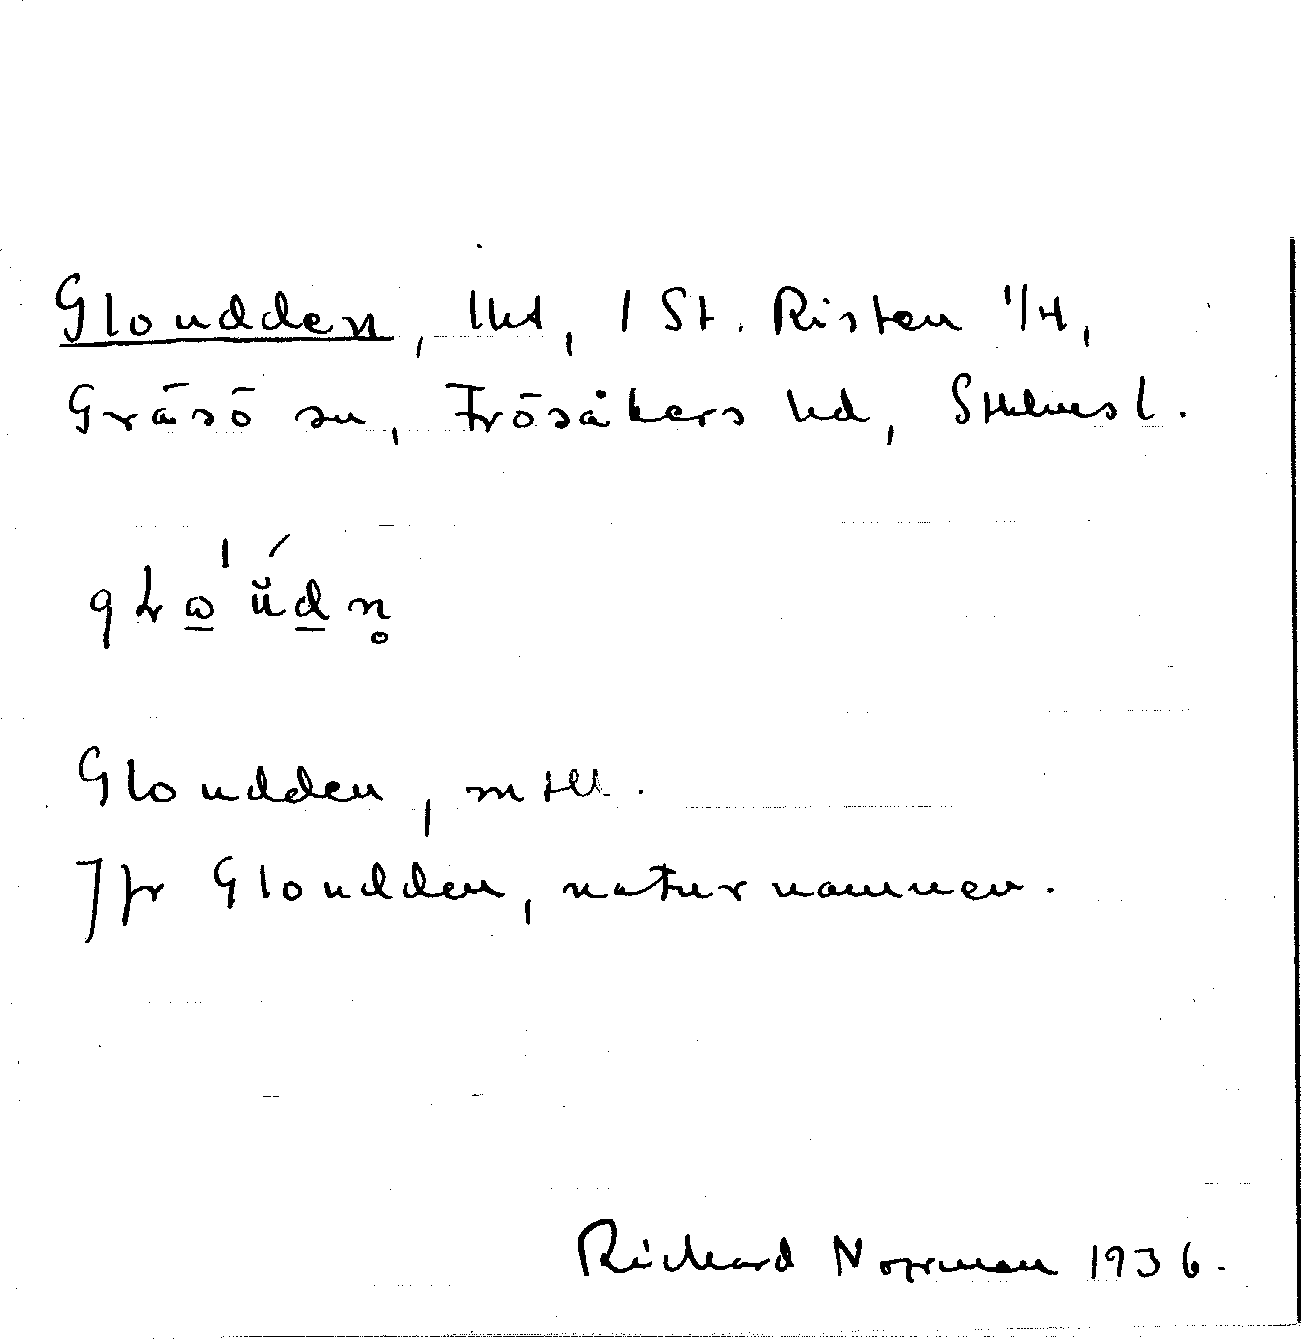 Gloudden, lht, 1 St. Risten 1/4,
Gräsö sn, Frösåkers hd, Sthlms l.
Gloudden, m tll.
Jfr Gloudden, naturnamnen.
Richard Norrman 1936.